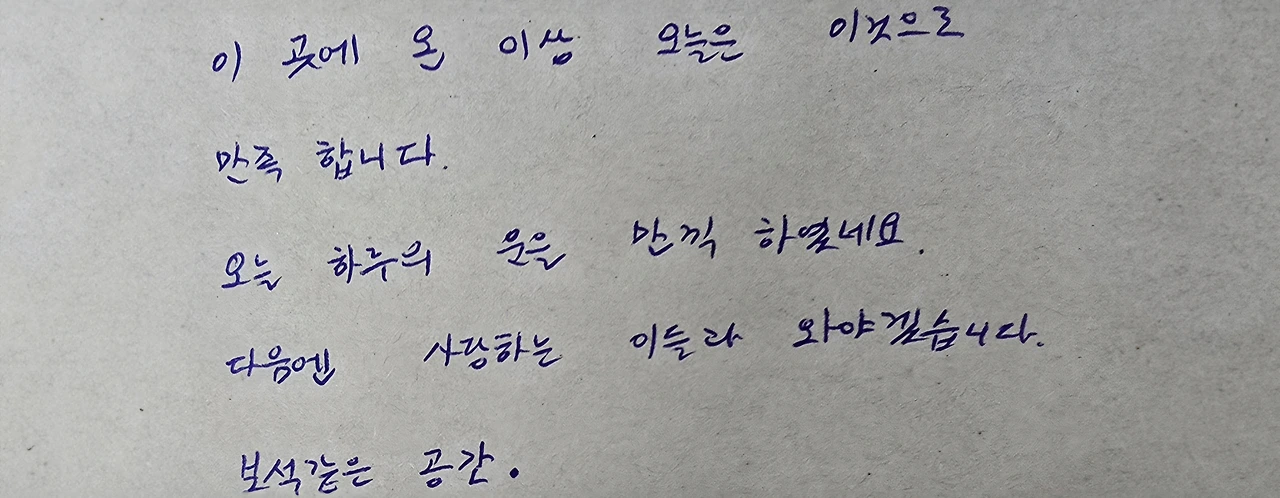 이 곳에 온 이상 오늘은 이것으로
만족 합니다.
오늘 하루의 운을 만끽 하였네요.
다음엔 사랑하는 이들과 와야겠습니다.
보석같은 공간.